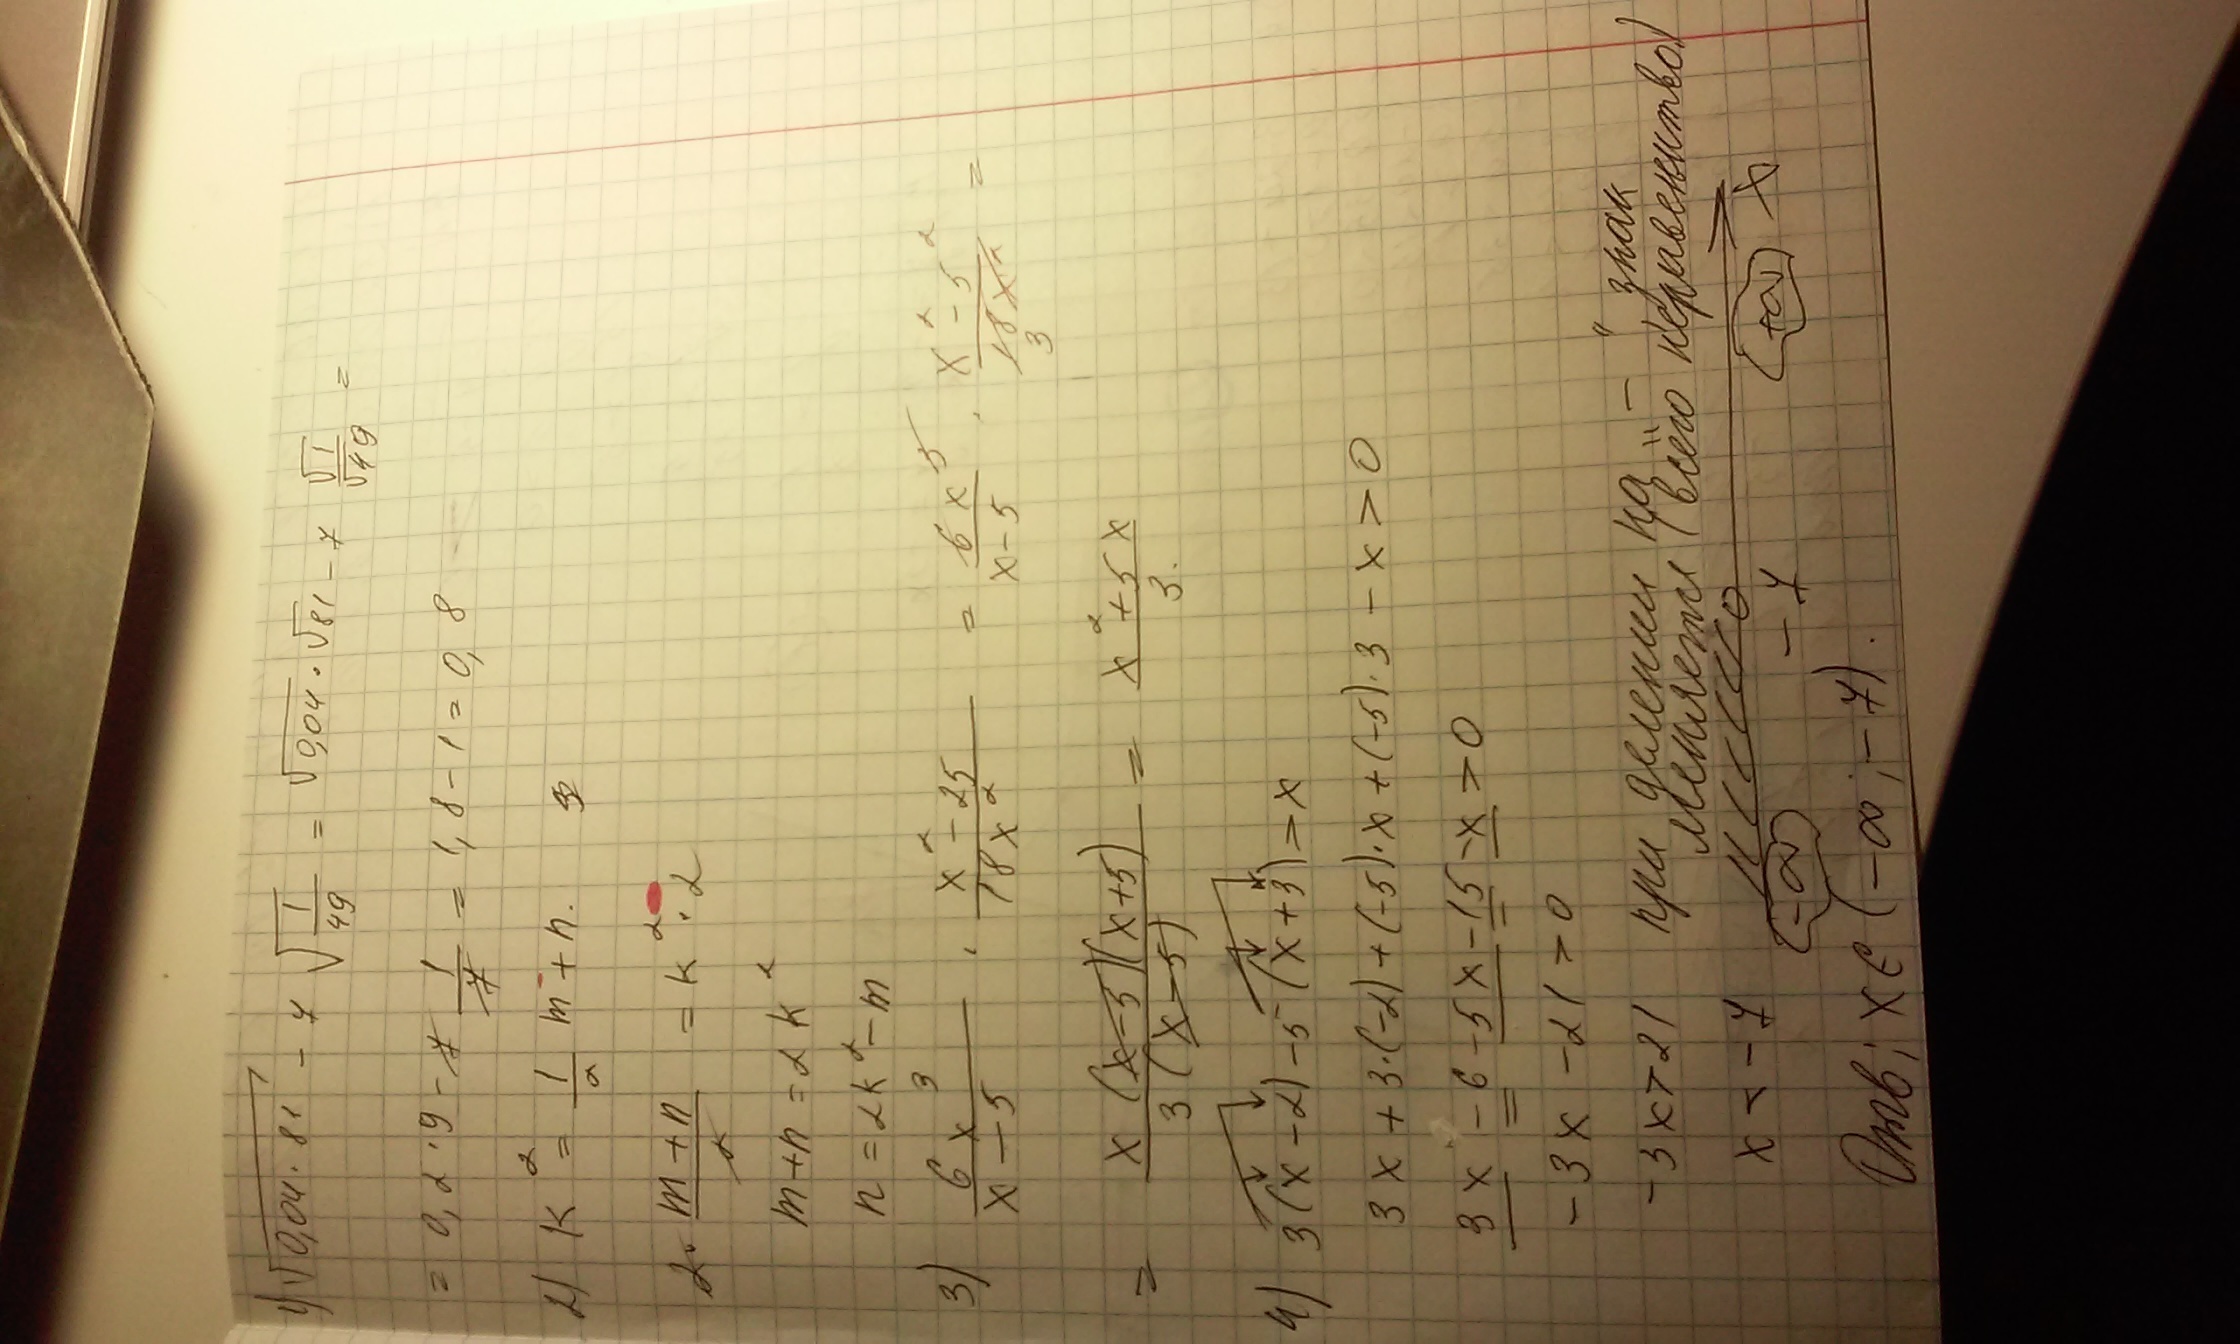 1) √0,04·81 - 7 √1/49 = √0,04 · √81 - 7 √1/√49 =
= 0,2 · 9 - 7 1/7 = 1,8 - 1 = 0,8
2) k² = 1/2 m + n.
2· m+n/2 = k² · 2
m+n = 2k²
n = 2k² - m
3) 6x³/x-5 · x²-25/18x² = 6x³/x-5 · x²-5²/18x² =
= x(x-5)(x+5)/3(x-5) = x²+5x/3.
4) 3(x-2)-5(x+3)>x
3x+3·(-2)+(-5)·x+(-5)·3-x>0
3x-6-5x-15-x>0
-3x-21>0
-3x>21 при делении на "-" знак
меняется (всего неравенство)
x<-7
(-∞) -7 (+∞) x
Отв; x∈(-∞;-7).